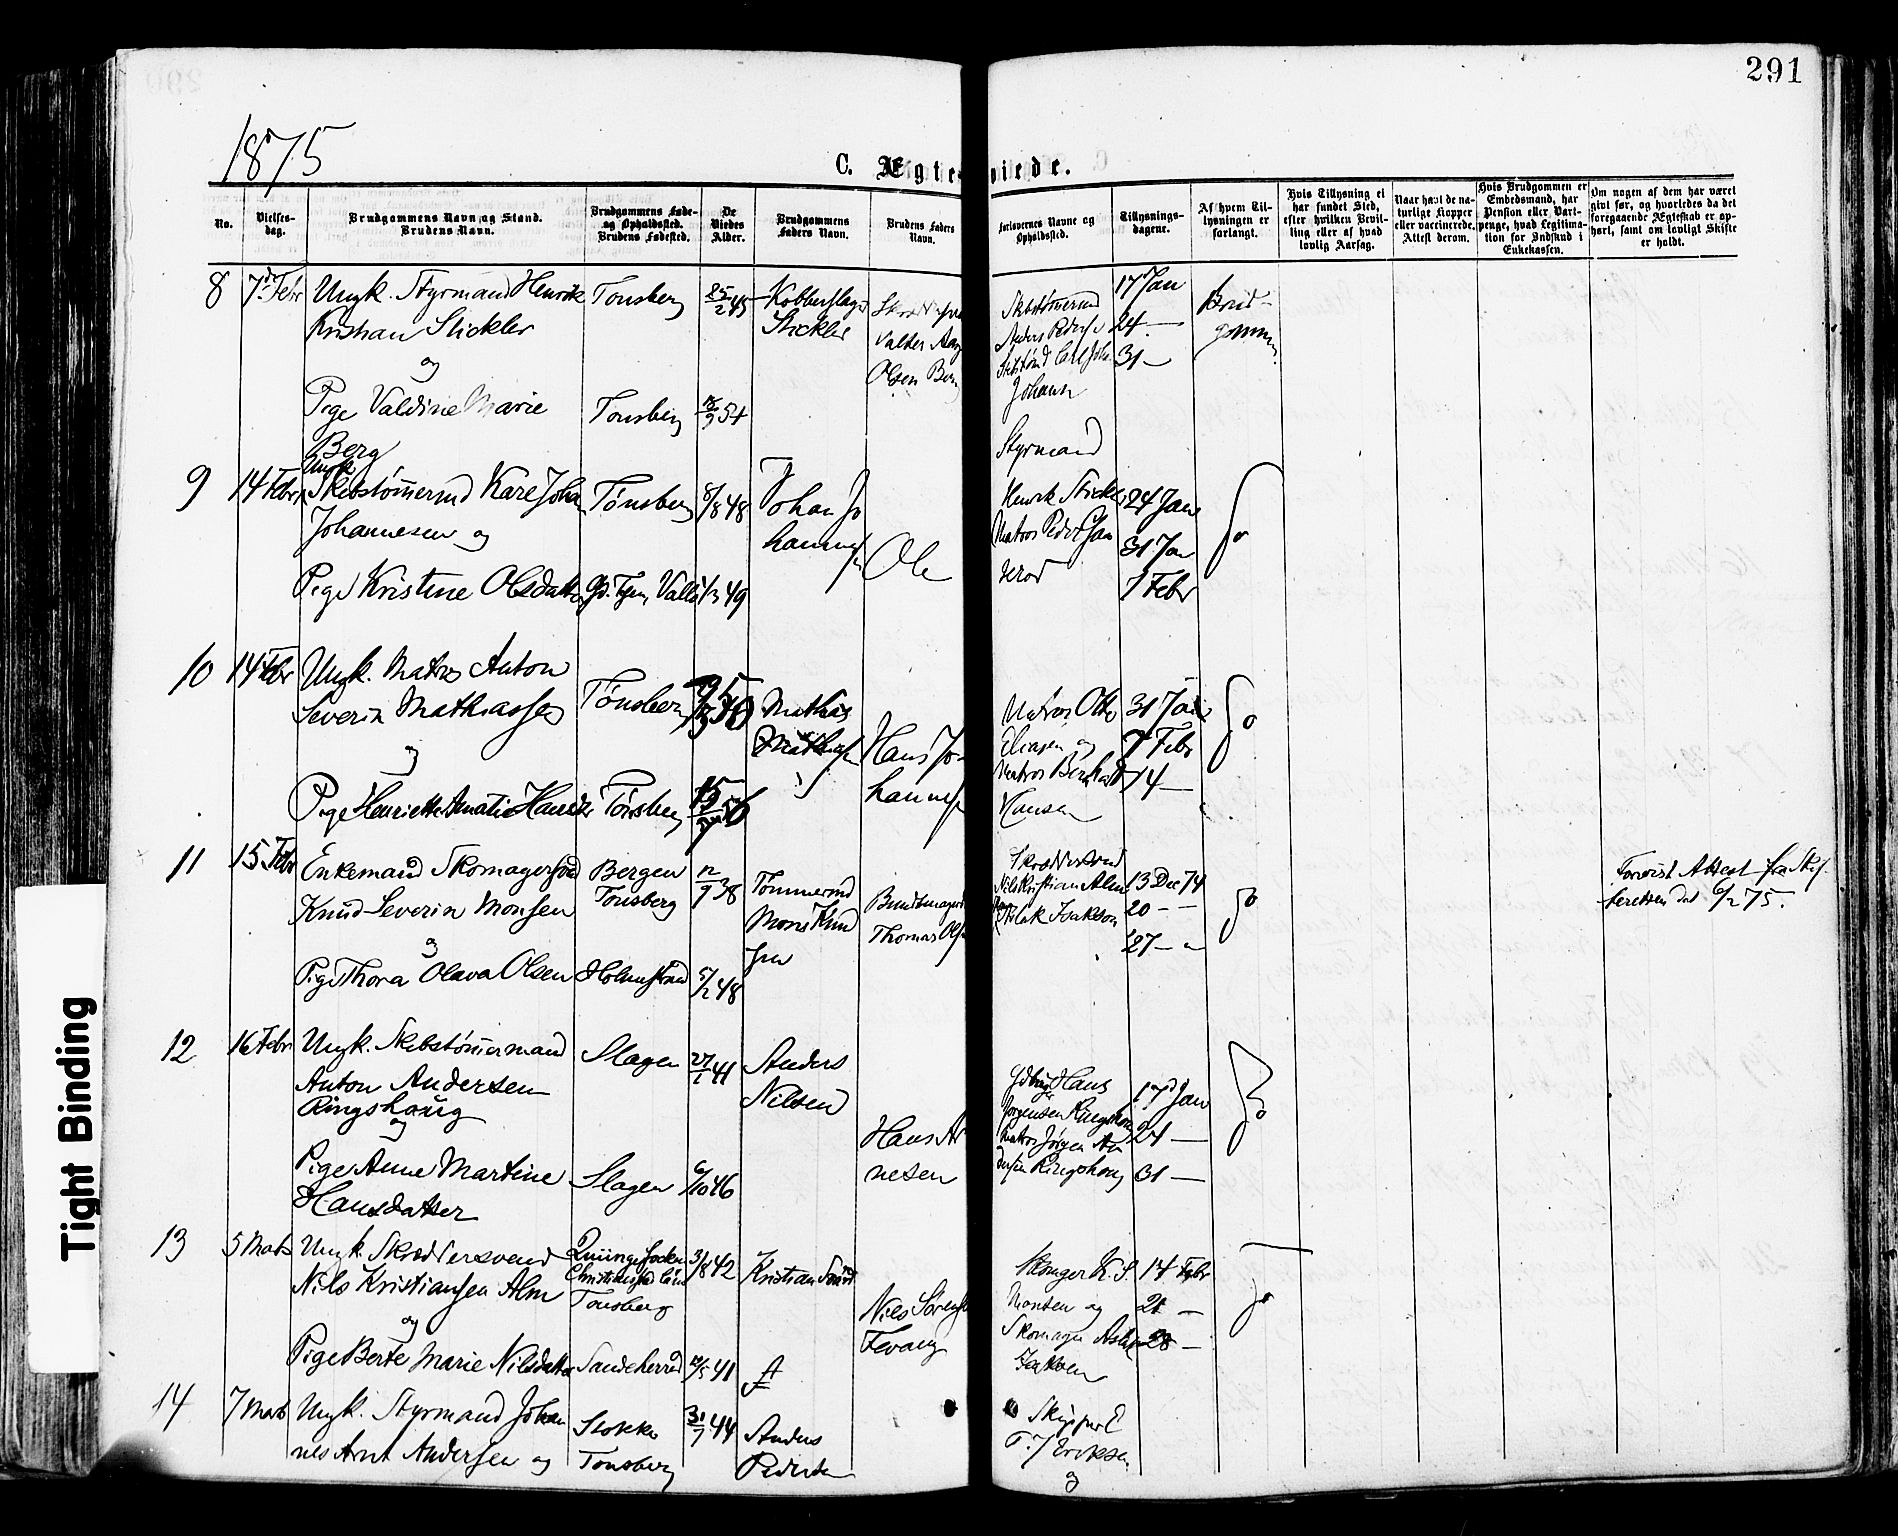 291
1875
C. Ægteviede.
No.
Vielses-
dag.
Brudgommens Navn og Stand.
Brudens Navn.
Brudgommens Føde-
og Opholdssted.
Brudens Fødested.
De
Viedes
Alder.
Brudgommens
Faders Navn.
Brudens Faders
Navn.
Forlovernes Navne og
Opholdssted.
Tillysnings-
dagene.
Af hvem Til-
lysningen er
forlangt.
Hvis Tillysning ei
har fundet Sted,
efter hvilken Bevil-
ling eller af hvad
lovlig Aarsag.
Naar havt de na-
turlige Kopper
eller vaccinerede.
Attest derom.
Hvis Brudgommen er
Embedsmand, har
Pension eller Vart-
penge, hvad Legitima-
tion for Indskud i
Enkekassen.
Om nogen af dem har været
givt før, og hvorledes da det
foregaaende Ægteskab er op-
hørt, samt om lovligt Skifte
er holdt.
8 7de Febr Ungk. Styrmand Henrik Tønsberg 25/2 45 Kobberslager
Kristian Stickler Stickler
og
Pige Valdine Marie Tønsberg 18/9 54
Berg
Valter Aug
Olsen Berg
Skibstømermd
Anders Peders
Carl Joh.
Johans
17 Jan
24 —
31 —
Brud-
gommen
9 14 Febr Ungk
Skibstømermd Kare Johan Tønsberg 8/8 48 Johan Jo
Johannesen og hannes
Pige Kristine Olsdatter Vallø 1/3 49
Ole
Styrmand
Henrik Stickler
Matros Peder
24 Jan
31 Jan
7 Febr
Do
10 14 Febr Ungk. Matros Anton
Severin Mathiassen Tønsberg Mathias
og
Pige Henriette Amalie Hansdr Tønsberg
Hans Jo-
hannes
Matros Otto
Eliasen og
Matros Bernhardt
Hansen
31 Jan
7 Febr
14 —
Do
11 15 Febr Enkemand Skomagersvd Bergen 12/9 38 Tømmermd
Knud Severin Monsen Tønsberg Mons Knud
og sen
Pige Thora Olava Olsen Holmestrand 5/2 48
Buntmager
Thomas Olsen
Skræddersvend
Nils Kristian Alm
Aslak Isakson
13 Dec 74
20 - -
27 - -
Do
Forevist Attest fra Skif-
teretten dat 6/2 75.
12 16 Febr Ungk. Skibstømermand Slagen 27/1 41 Anders
Anton Andersen Nilsen
Ringshoug
og
Pige Anne Martine Slagen 6/10 46
Hansdatter
Hans Ar
nesen
Hans
Jørgensen Ringshoug
Matros Jørgen An
dersen Ringshoug
17 Jan
24 —
31 —
Do
13 5 Marts Ungk. Skræddersvend 3/8 42 Kristian
Nils Kristiansen Alm Tønsberg
og
Pige Berte Marie Nilsdatter Sandeherred 41
Nils Sørensen
Fevang
Skomager K. S.
Monsen og
Skomager Aslak
Isaksen
14 Febr
21 —
28 —
Do
14 7 Marts Ungk. Styrmand Johan Stokke 31/7 44 Anders
nes Arnt Andersen og Tønsberg Pedersen
Skipper E
T. J Eriksen
og
Tight Binding